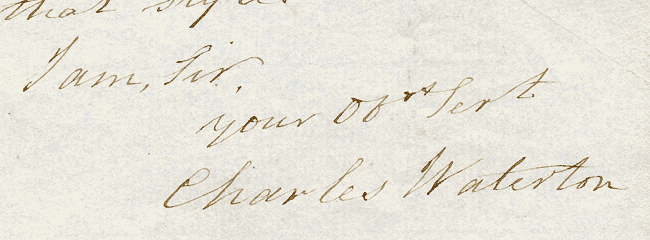 that
I am, Sir,
your Obt Sert
Charles Waterton